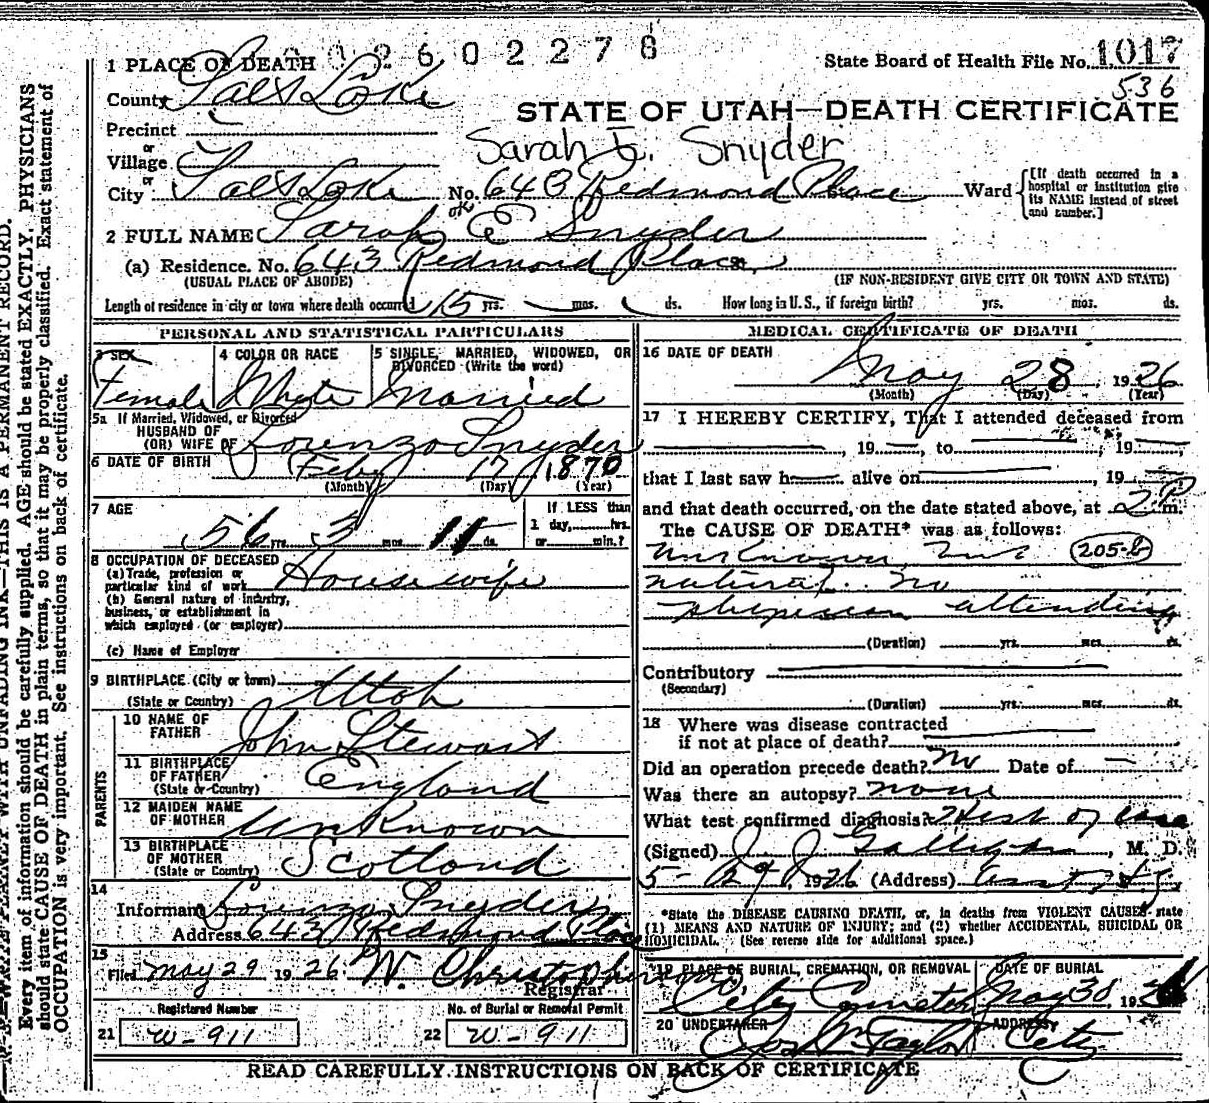 002602278
1 PLACE OF DEATH
State Board of Health File No. 1017
536
County Salt Lake
STATE OF UTAH—DEATH CERTIFICATE
Precinct
or
Village
Sarah E. Snyder
or
City Salt Lake No. 643 Redmond Place Ward
[If death occurred in a hospital or institution give its NAME instead of street and number.]
ok
2 FULL NAME Sarah E Snyder
(a) Residence. No. 643 Redmond Place
(USUAL PLACE OF ABODE)
(IF NON-RESIDENT GIVE CITY OR TOWN AND STATE)
Length of residence in city or town where death occurred 15 yrs. mos. ds. How long in U. S., if foreign birth? yrs. mos. ds.
PERSONAL AND STATISTICAL PARTICULARS
3 SEX
Female
4 COLOR OR RACE
White
5 SINGLE, MARRIED, WIDOWED, OR DIVORCED (Write the word)
Married
5a If Married, Widowed, or Divorced
HUSBAND OF
(OR) WIFE OF Lorenzo Snyder
6 DATE OF BIRTH Feby 17 1870
(Month) (Day) (Year)
7 AGE
56 yrs. 3 mos. 11 ds.
If LESS than
1 day, hrs.
or min.?
8 OCCUPATION OF DECEASED
(a) Trade, profession or
particular kind of work Housewife
(b) General nature of industry,
business, or establishment in
which employed (or employer)
(c) Name of Employer
9 BIRTHPLACE (City or town)
(State or Country) Utah
PARENTS
10 NAME OF
FATHER John Stewart
11 BIRTHPLACE
OF FATHER
(State or Country) England
12 MAIDEN NAME
OF MOTHER Unknown
13 BIRTHPLACE
OF MOTHER
(State or Country) Scotland
14
Informant Lorenzo Snyder
Address 643 Redmond Place
15
Filed May 29 1926 W. Christopherson
Registrar
Registered Number
21 W-911
No. of Burial or Removal Permit
22 W-911
MEDICAL CERTIFICATE OF DEATH
16 DATE OF DEATH
May 28, 1926
(Month) (Day) (Year)
17 I HEREBY CERTIFY, That I attended deceased from
, 19 , to , 19
that I last saw h alive on , 19
and that death occurred, on the date stated above, at 2 P m.
The CAUSE OF DEATH* was as follows:
Unknown, but 205-b
natural. No
physician attending
(Duration) yrs. mos. ds.
Contributory
(Secondary)
(Duration) yrs. mos. ds.
18 Where was disease contracted
if not at place of death?
Did an operation precede death? No Date of —
Was there an autopsy? none
What test confirmed diagnosis? Hist of case
(Signed) J J Galligan, M. D.
5-29, 1926 (Address)
*State the DISEASE CAUSING DEATH, or, in deaths from VIOLENT CAUSES state
(1) MEANS AND NATURE OF INJURY; and (2) whether ACCIDENTAL, SUICIDAL OR
HOMICIDAL. (See reverse side for additional space.)
19 PLACE OF BURIAL, CREMATION, OR REMOVAL
City Cemetery
DATE OF BURIAL
May 30, 19
20 UNDERTAKER
Jos Wm Taylor
ADDRESS
City
READ CAREFULLY INSTRUCTIONS ON BACK OF CERTIFICATE
N. B.—WRITE PLAINLY WITH UNFADING INK—THIS IS A PERMANENT RECORD.
Every item of information should be carefully supplied. AGE should be stated EXACTLY. PHYSICIANS
should state CAUSE OF DEATH in plain terms, so that it may be properly classified. Exact statement of
OCCUPATION is very important. See instructions on back of certificate.